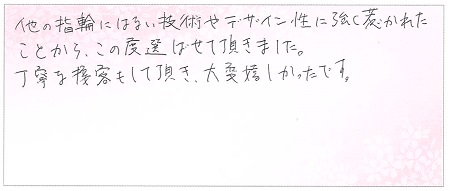 他の指輪にはない技術やデザイン性に強く惹かれた
ことから、この度選ばせて頂きました。
丁寧な接客もして頂き、大変嬉しかったです。